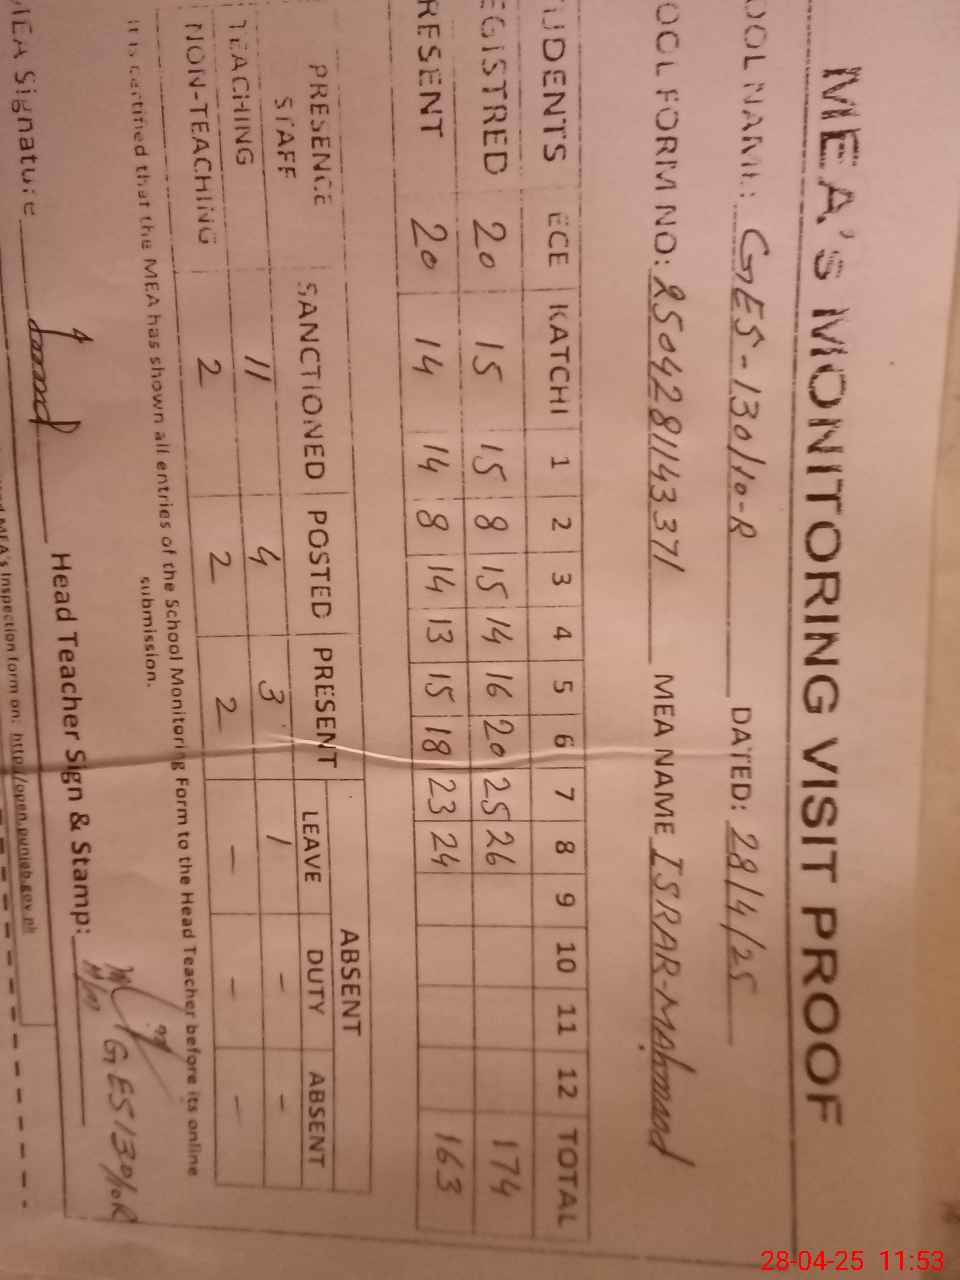 MEA'S MONITORING VISIT PROOF
OOL NAME: GES-130/10-R DATED: 28/4/25
OOL FORM NO: 2504281143371 MEA NAME ISRAR-Mahmood
UDENTS ECE KATCHI 1 2 3 4 5 6 7 8 9 10 11 12 TOTAL
EGISTRED 20 15 15 8 15 14 16 20 25 26 174
RESENT 20 14 14 8 14 13 15 18 23 24 163
PRESENCE STAFF SANCTIONED POSTED PRESENT ABSENT
LEAVE DUTY ABSENT
TEACHING 11 4 3 1 - -
NON-TEACHING 2 2 2 - - -
It is certified that the MEA has shown all entries of the School Monitoring Form to the Head Teacher before its online
submission.
MEA Signature Head Teacher Sign & Stamp:
GES 130/10R
MEA's Inspection form on: http://open.punjab.gov.pk
28-04-25 11:53